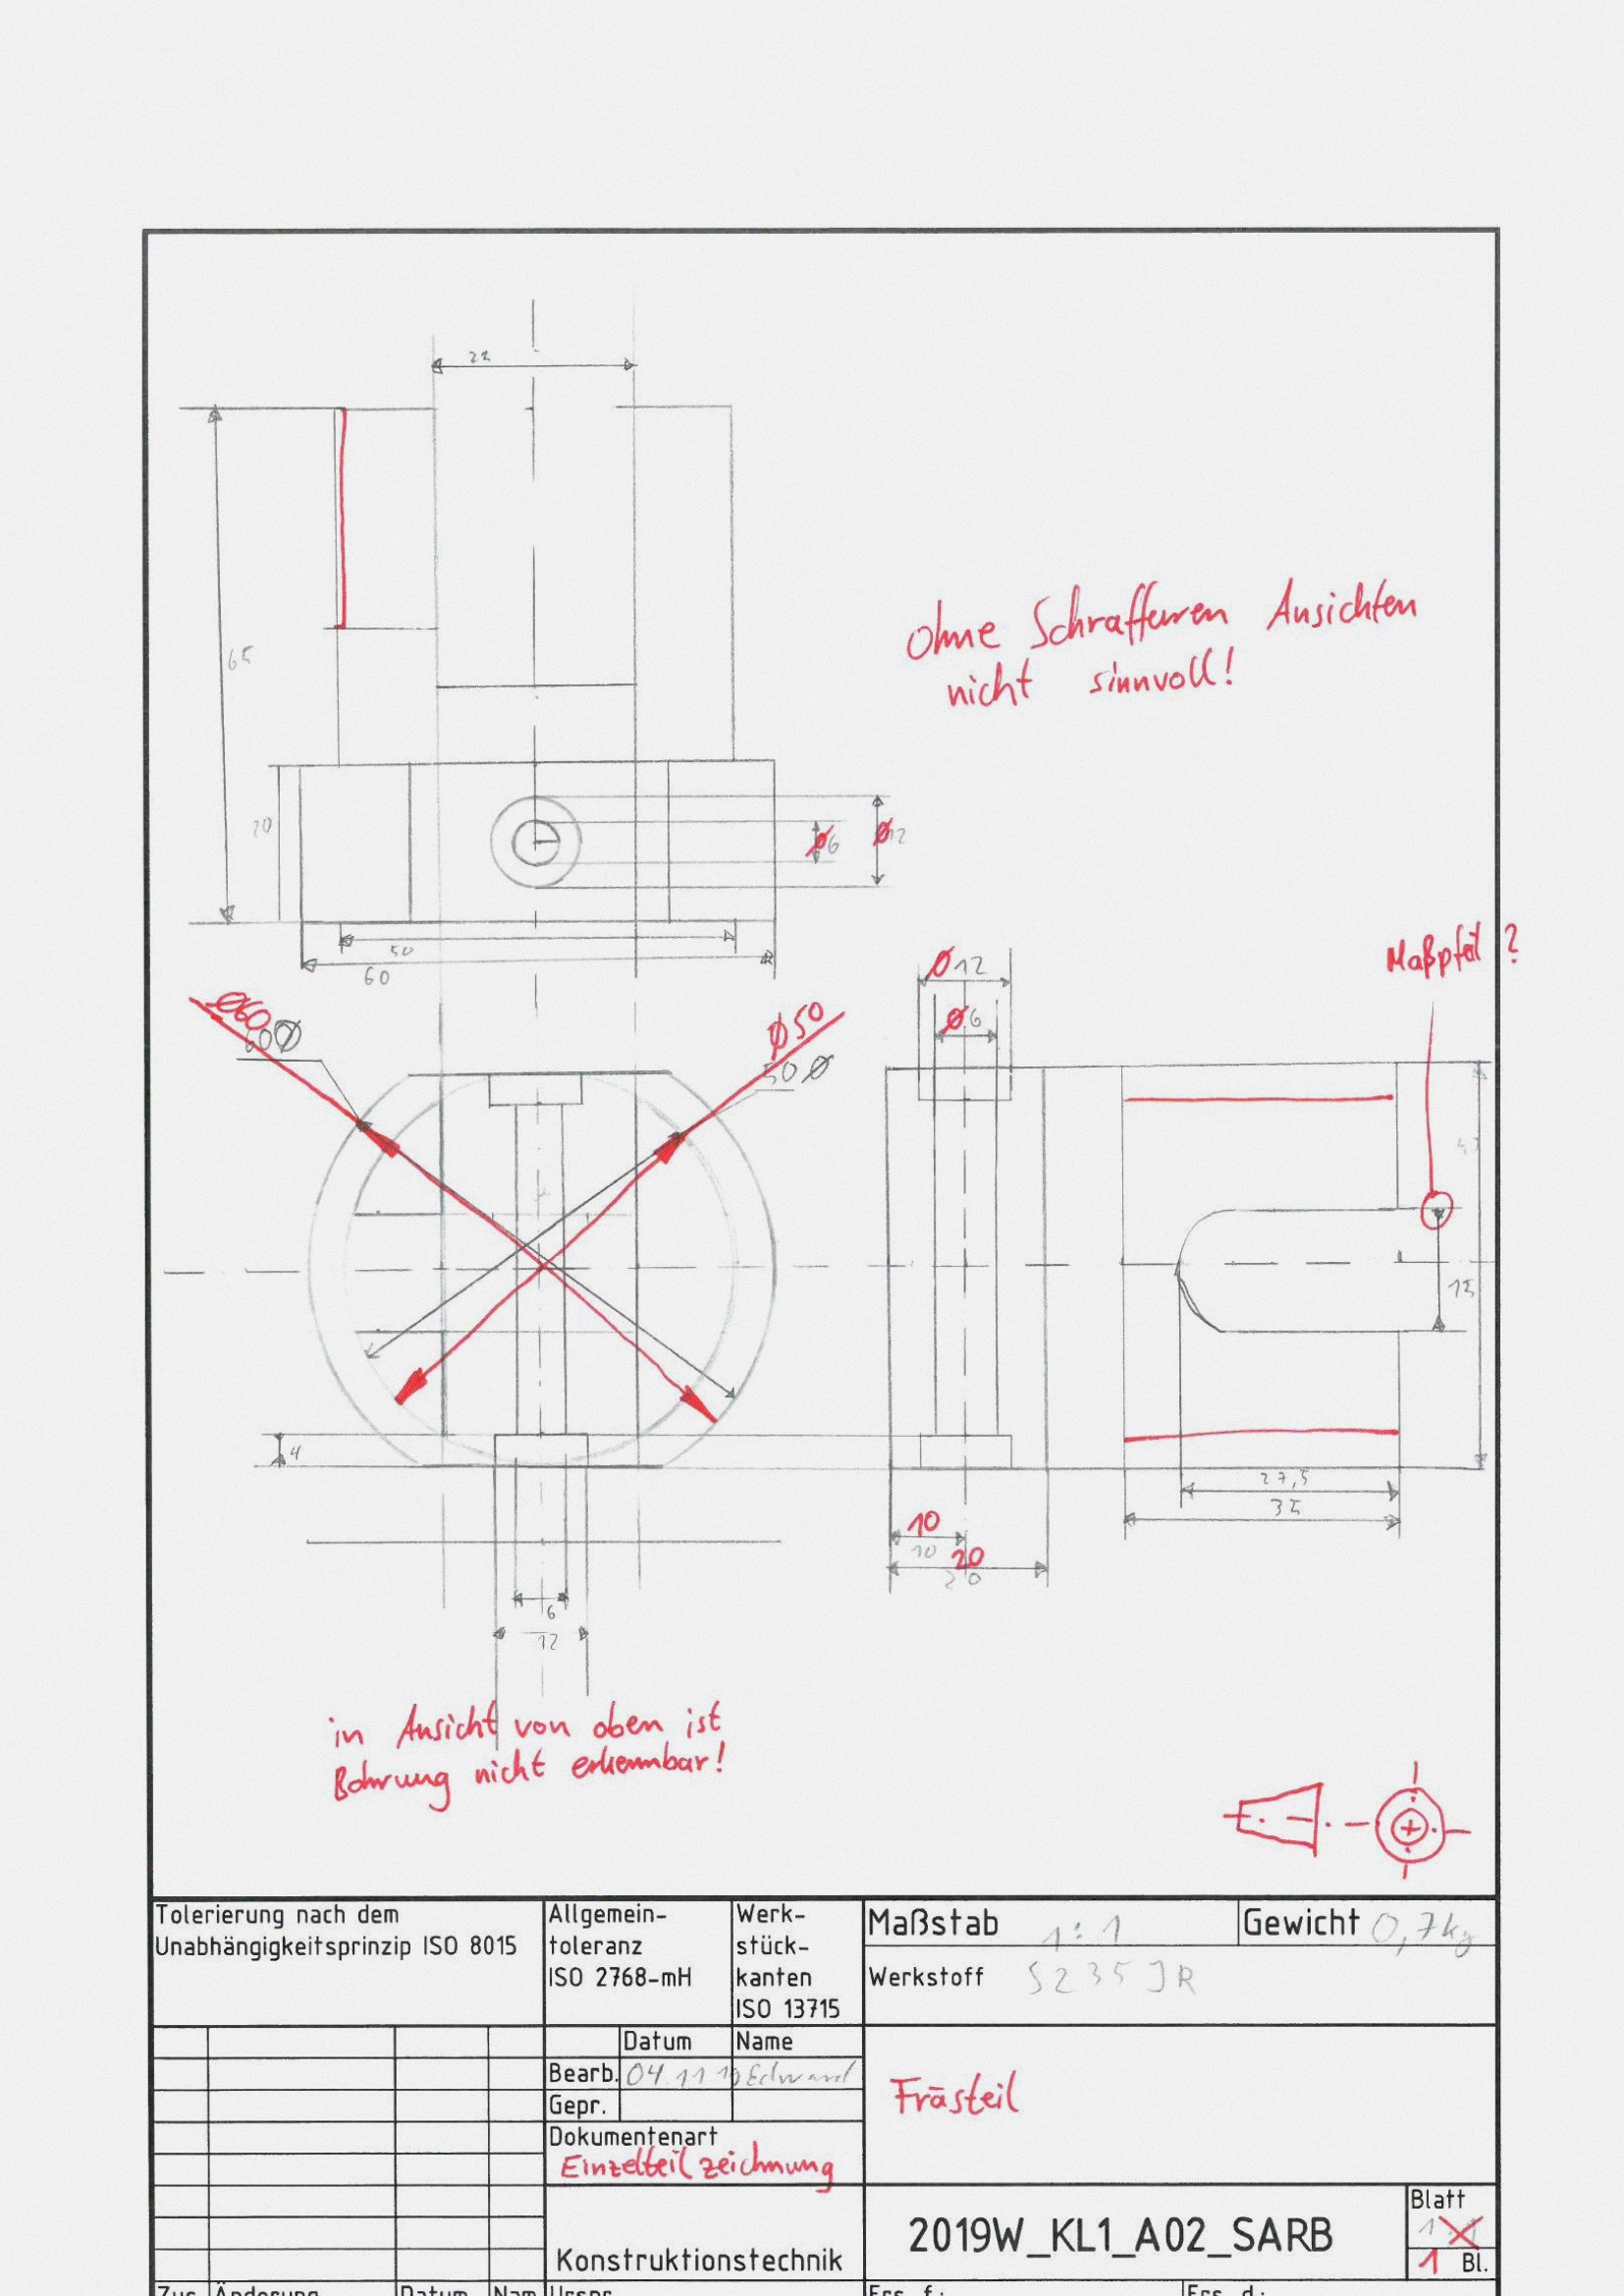 65
ohne Schraffuren Ansichten
nicht sinnvoll!
20
ø6
ø12
50
60
Maßpfeil ?
ø12
ø6
ø60
60ø
ø50
50ø
15
4
27,5
35
10
10
20
20
6
12
in Ansicht von oben ist
Bohrung nicht erkennbar!
Tolerierung nach dem
Unabhängigkeitsprinzip ISO 8015
Allgemein-
toleranz
ISO 2768-mH
Werk-
stück-
kanten
ISO 13715
Maßstab 1:1
Gewicht 0,7kg
Werkstoff S235JR
Datum Name
Bearb. 04.11.19 Edward
Gepr.
Dokumentenart
Einzelteilzeichnung
Frästeil
Konstruktionstechnik
2019W_KL1_A02_SARB
Blatt
1
1 Bl.
Zus. Änderung Datum Nam. Urspr.
Ers. f.: Ers. d.: